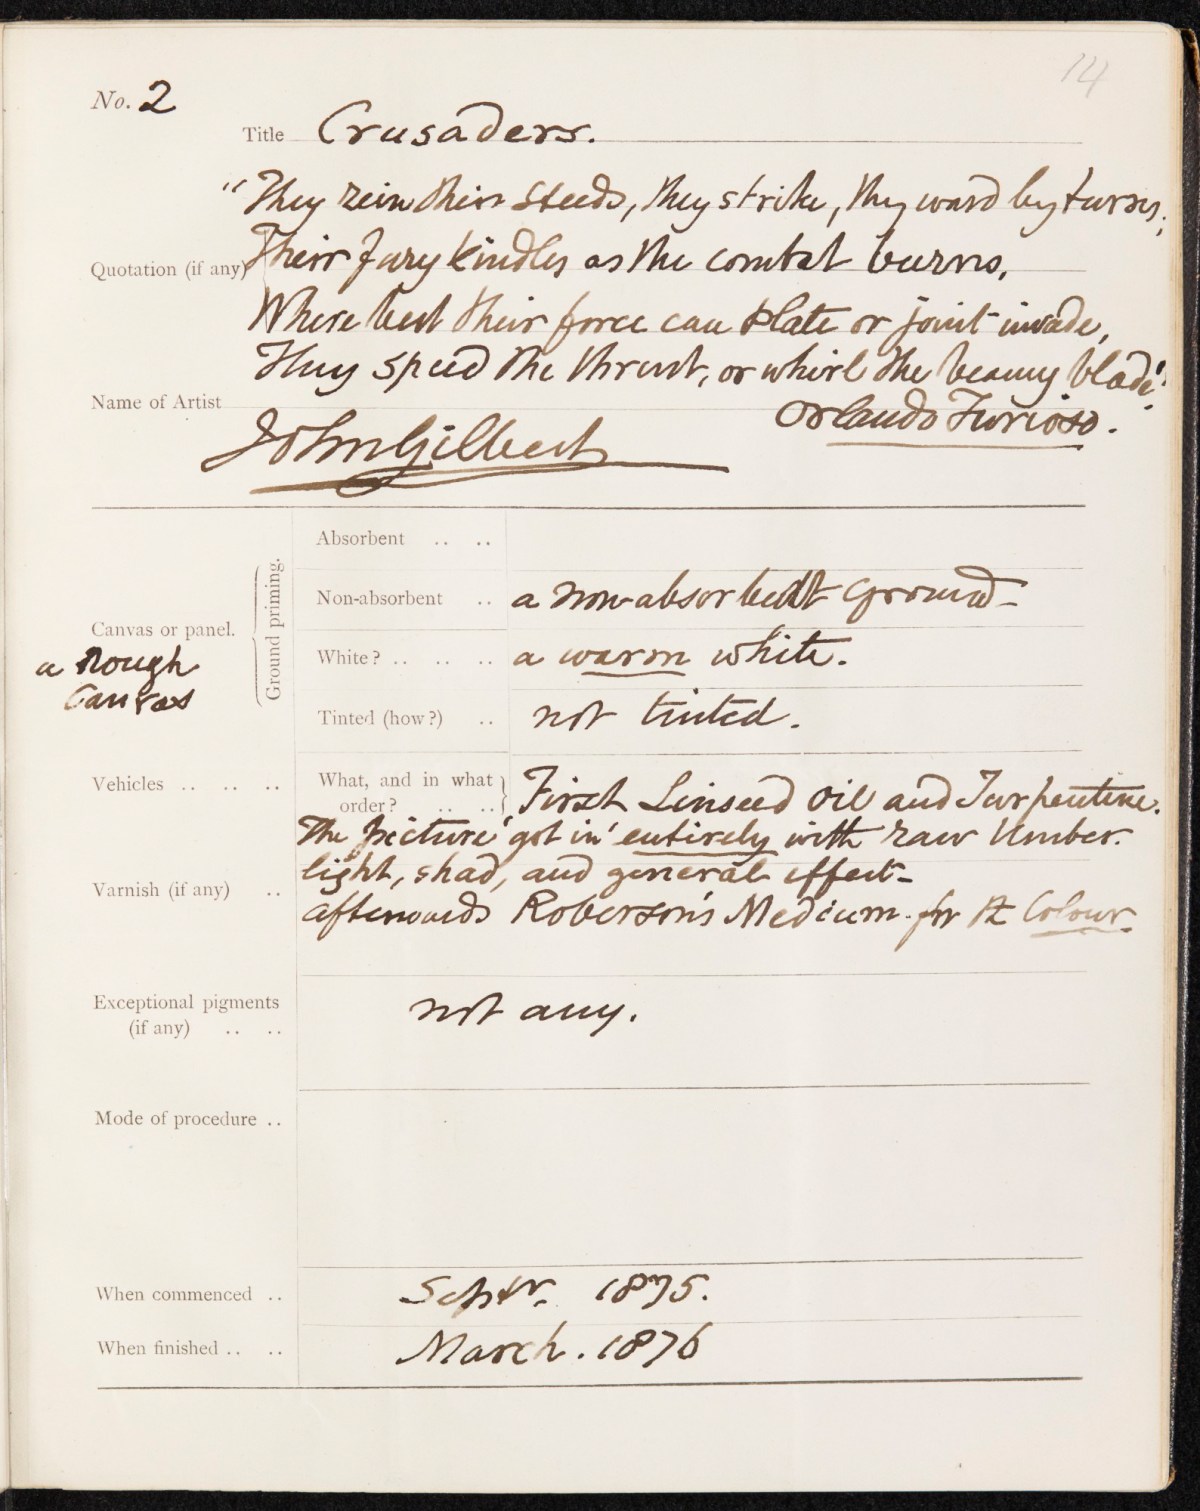 14
No. 2
Title Crusaders.
"They rein their Steeds, they strike, they ward by turns;
Quotation (if any) Their fury kindles as the combat burns,
Where best their force can plate or joint invade,
They speed the thrust, or whirl the beamy blade."
Name of Artist Orlando Furioso.
John Gilbert
Absorbent .. ..
Non-absorbent .. a non-absorbent ground—
Canvas or panel. Ground priming.
White? .. .. .. a warm white.
a rough
Canvas
Tinted (how?) .. not tinted.
Vehicles .. .. .. What, and in what order? .. .. First Linseed Oil and Turpentine.
The picture 'got in' entirely with raw Umber.
light, shad, and general effect—
Varnish (if any) ..
afterwards Roberson's Medium for the Colour.
Exceptional pigments
(if any) .. .. not any.
Mode of procedure ..
When commenced .. Septr. 1875.
When finished .. .. March. 1876